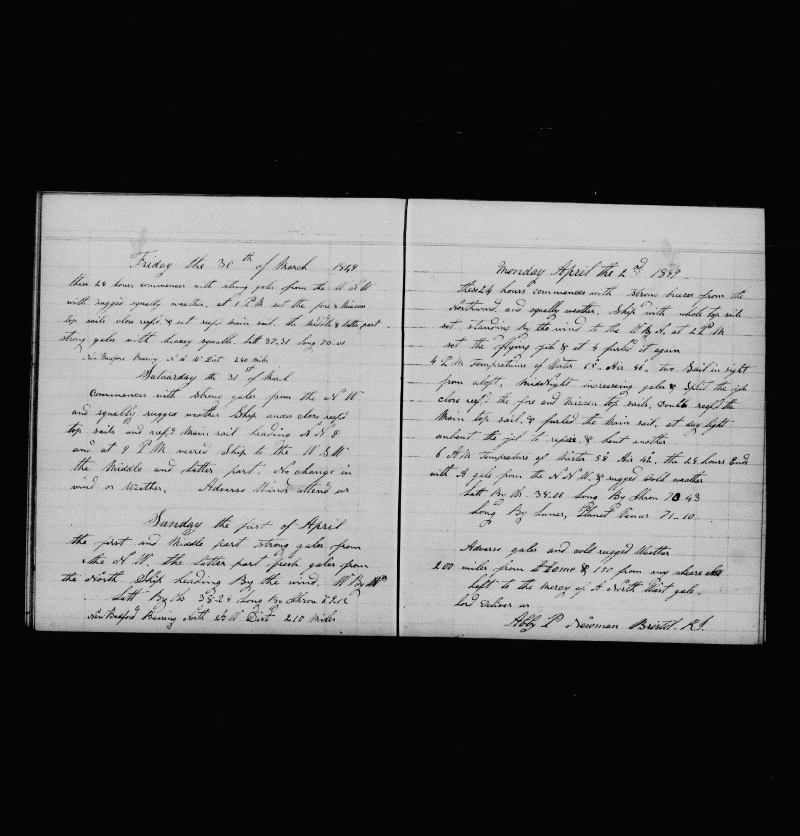 Friday the 30th of March 1849
these 24 hours commences with strong gales from the W S W
with rugged squally weather, at 1 P.M set the fore & Mizen
top sails close reefd. & set reefd main sail. the Middle & latter part
strong gales with heavy squalls. latt 37.31 Long 70.01
New Bedford Bearing N W Dist 240 miles
Saturday the 31st of March
Commences with strong gales from the N W
and squally rugged weather Ship under close reefd
top sails and reefd Main sail heading N N E
and at 9 P M veered Ship to the W S W
the Middle and latter part. No change in
wind or Weather. Adverse Winds attend us
Sunday the first of April
the first and Middle part strong gales from
the N W. the Latter part fresh gales from
the North Ship heading By the wind. W By N
Latt By Ob 38-24 Long By Chron 69.12
New Bedford Bearing North W Dist 210 Miles
Monday April the 2nd 1849
these 24 hours commences with strong breezes from the
Northward, and squally weather. Ship with whole top sails
set standing By the wind to the W By N. at 2 P M
set the flying jib & at 4 furled it again
4 P.M Tempreture of Water 65- Air 46- two Sail in sight
from aloft, MiddNight increasing gales & Split the jib
close reefd the fore and Mizen top sails. Double reefd the
Main top sail & furled the Main sail. at day light
unbent the jib to repair, & bent another
6 A M Tempreture of Warter 58 Air 42. the 24 hours Ends
with A gale from the N N W. & rugged Cold weather
Latt By Ob- 38.00 Long By Chron 70 43
Long By Luner, Planet Venus 71-10-
Adverse gales and cold rugged Weather
200 miles from Home & 150 from any where else
Left to the mercy of A North West gale,
lord Deliver us
Abby P Newman Bristol. R.I.